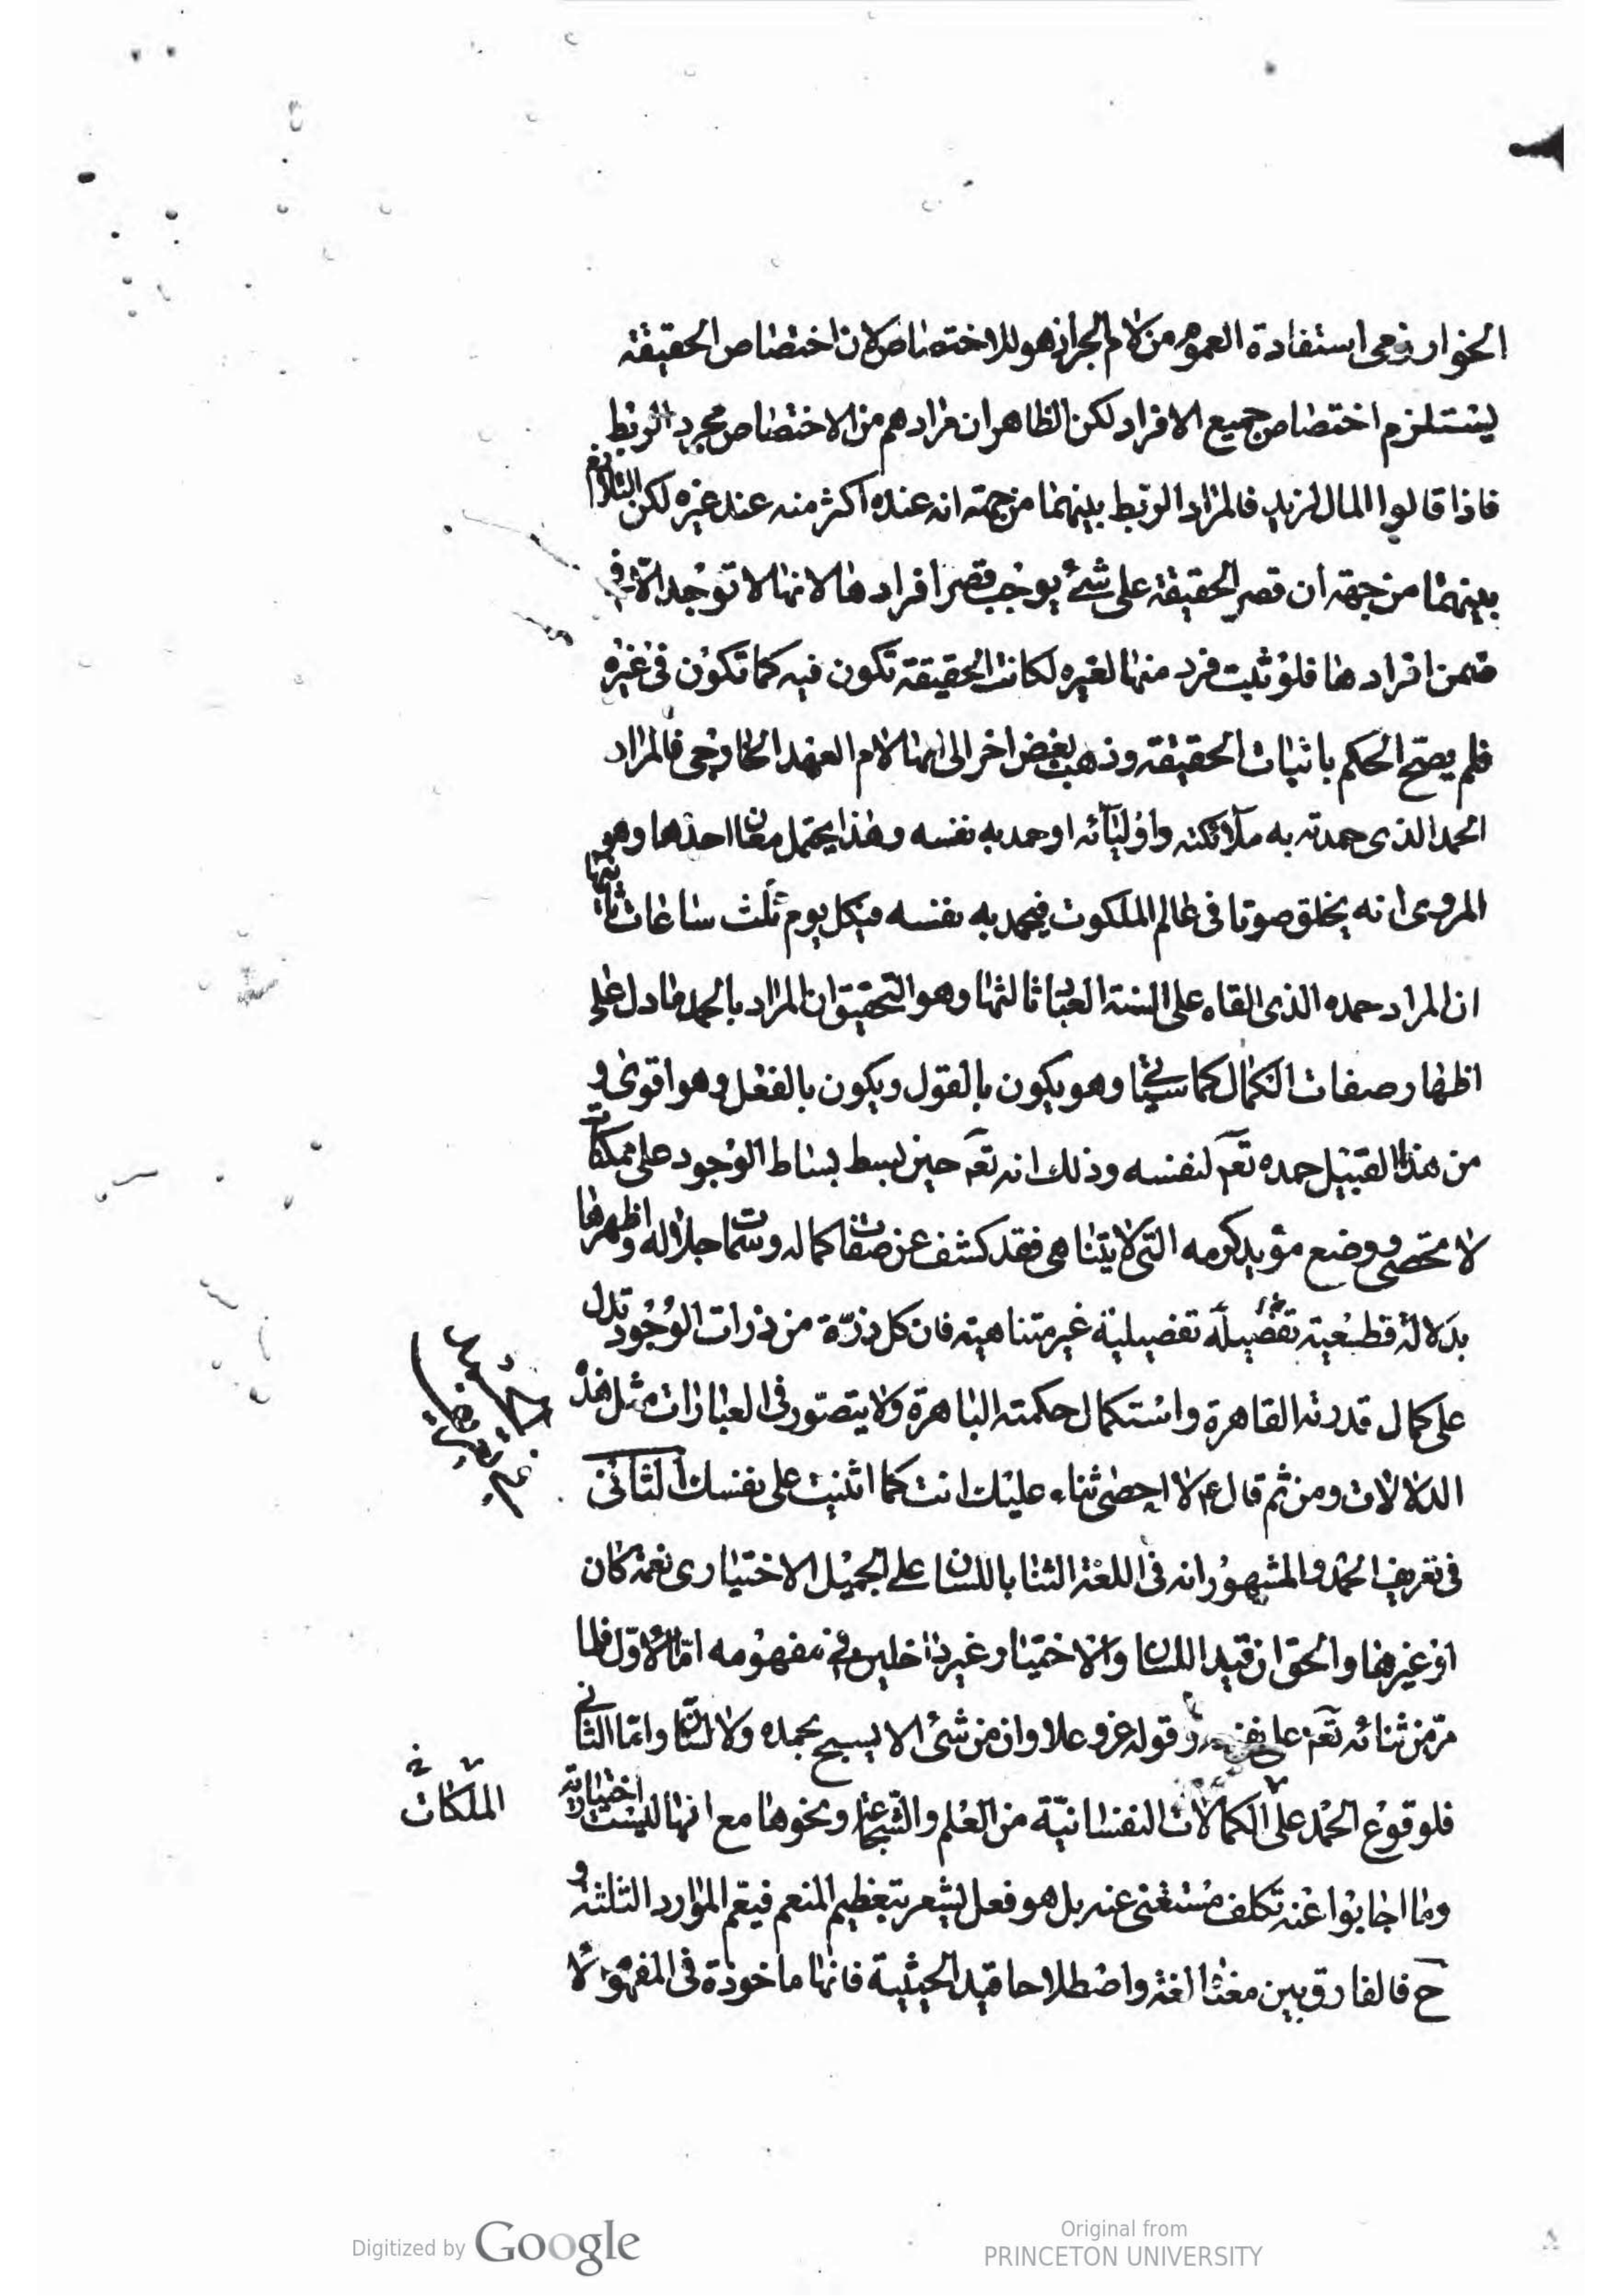 الخوارزمى استفادة العموم من لام الجر اذ هو للاختصاص لان اختصاص الحقيقة
يستلزم اختصاص جميع الافراد لكن الظاهر ان مرادهم من الاختصاص مجرد الربط
فاذا قالوا المال لزيد فالمراد الربط بينهما من جهته انه عنده اكثر منه عند غيره لكن التلازم
بينهما من جهته ان قصر الحقيقة على شئ يوجب قصر افرادها لانها لا توجد الا فى
ضمن افرادها فلو ثبت فرد منها لغيره لكانت الحقيقة تكون فيه كما تكون فى غيره
فلم يصح الحكم باثبات الحقيقة وذهب بعض اخر الى انها لام العهد الخارجى فالمراد
الحمد الذى حمدته به ملآئكته واوليآئه او حمد به نفسه وهذا يحتمل معان احدها وهو
المروى انه يخلق صوتا فى عالم الملكوت فيحمد به نفسه فى كل يوم ثلث ساعات ثانيها
ان المراد حمده الذى القاه على السنة العباد ثالثها وهو التحقيق ان المراد بالحمد ما دل على
اظهار صفات الكمال كما سيجئ وهو يكون بالقول ويكون بالفعل وهو اقوى و
من هذا القبيل حمده تعم لنفسه وذلك انه تعم حين بسط بساط الوجود على ممكنات
لا تحصى ووضع موائد كرمه التى لا يتناهى فقد كشف عن صفات كماله وسمات جلاله واظهرها
بدلالة قطعية تفصيلية غير متناهية فان كل ذرّة من ذرات الوجود تدل
على كمال قدرته القاهرة واستكمال حكمته الباهرة ولا يتصوّر فى العبارات مثل هذه
الدلالات ومن ثم قال ع لا احصى ثناء عليك انت كما اثنيت على نفسك الثانى
فى تعريف الحمد والمشهور انه فى اللغة الثنا باللسان على الجميل الاختيارى نعمة كان
او غيرها والحق ان قيد اللسان والاختيار غير داخلين فى مفهومه امّا الاوّل فلما
مرّ من ثنائه تعم على نفسه وقوله عز وعلا وان من شئ الا يسبح بحمده ولا لسان وامّا الثانى
فلوقوع الحمد على الكمالات النفسانيّة من العلم والشّجاعة ونحوها مع انها ليست اختيارية
الملكات خ
وما اجابوا عنه تكلف مستغنى عنه بل هو فعل يشعر بتعظيم المنعم فيعم الموارد الثلثة و
ح فالفارق بين معناه لغة واصطلاحا قيد الحيثية فانها ماخوذة فى المفهوم لا